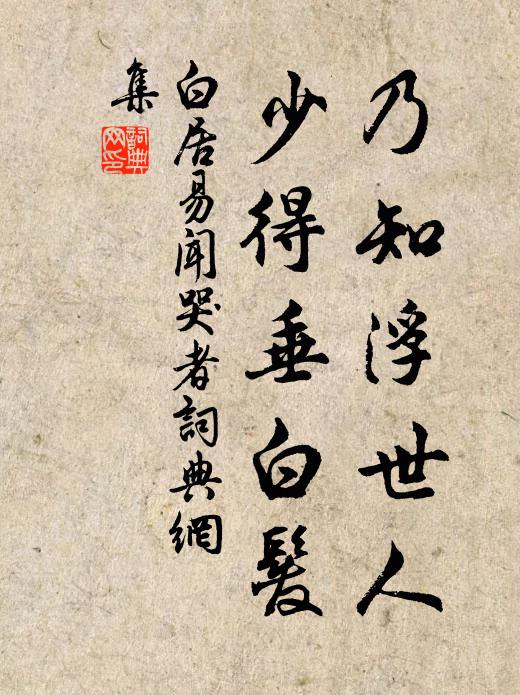 乃知浮世人
少得垂白髮
白居易聞哭者詞典網
集
詞典网印